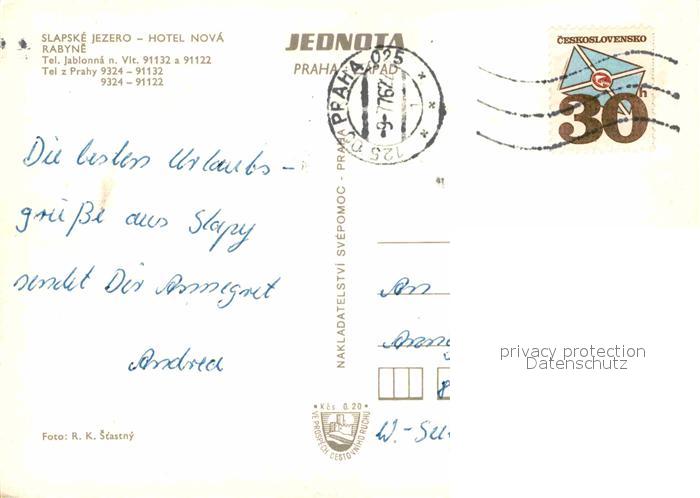 SLAPSKÉ JEZERO – HOTEL NOVÁ
RABYNĚ
Tel. Jablonná n. Vlt. 91132 a 91122
Tel z Prahy 9324 – 91132
9324 – 91122
JEDNOTA
PRAHA ZÁPAD
PRAHA 025
125 05
-9.-7.76
ČESKOSLOVENSKO
30h
Die besten Urlaubs-
grüße aus Slapy
sendet Dir Annegret
Andrea
NAKLADATELSTVÍ SVÉPOMOC - PRAHA
An
Anne
8
W.-
Kčs 0.20
VE PROSPĚCH CESTOVNÍHO RUCHU
Foto: R. K. Šťastný
privacy protection
Datenschutz